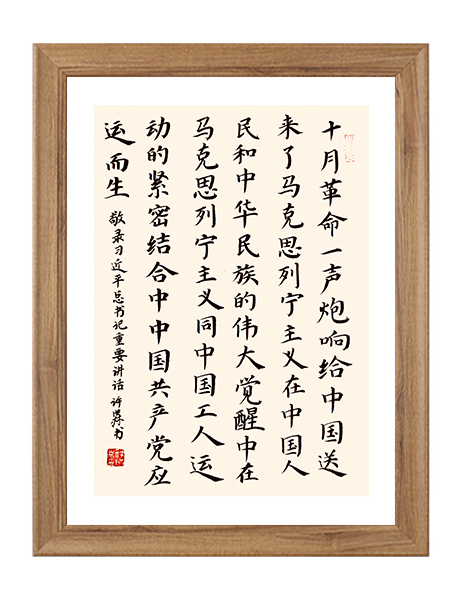 十月革命一声炮响给中国送
来了马克思列宁主义在中国人
民和中华民族的伟大觉醒中在
马克思列宁主义同中国工人运
动的紧密结合中中国共产党应
运而生
敬录习近平总书记重要讲话 许书